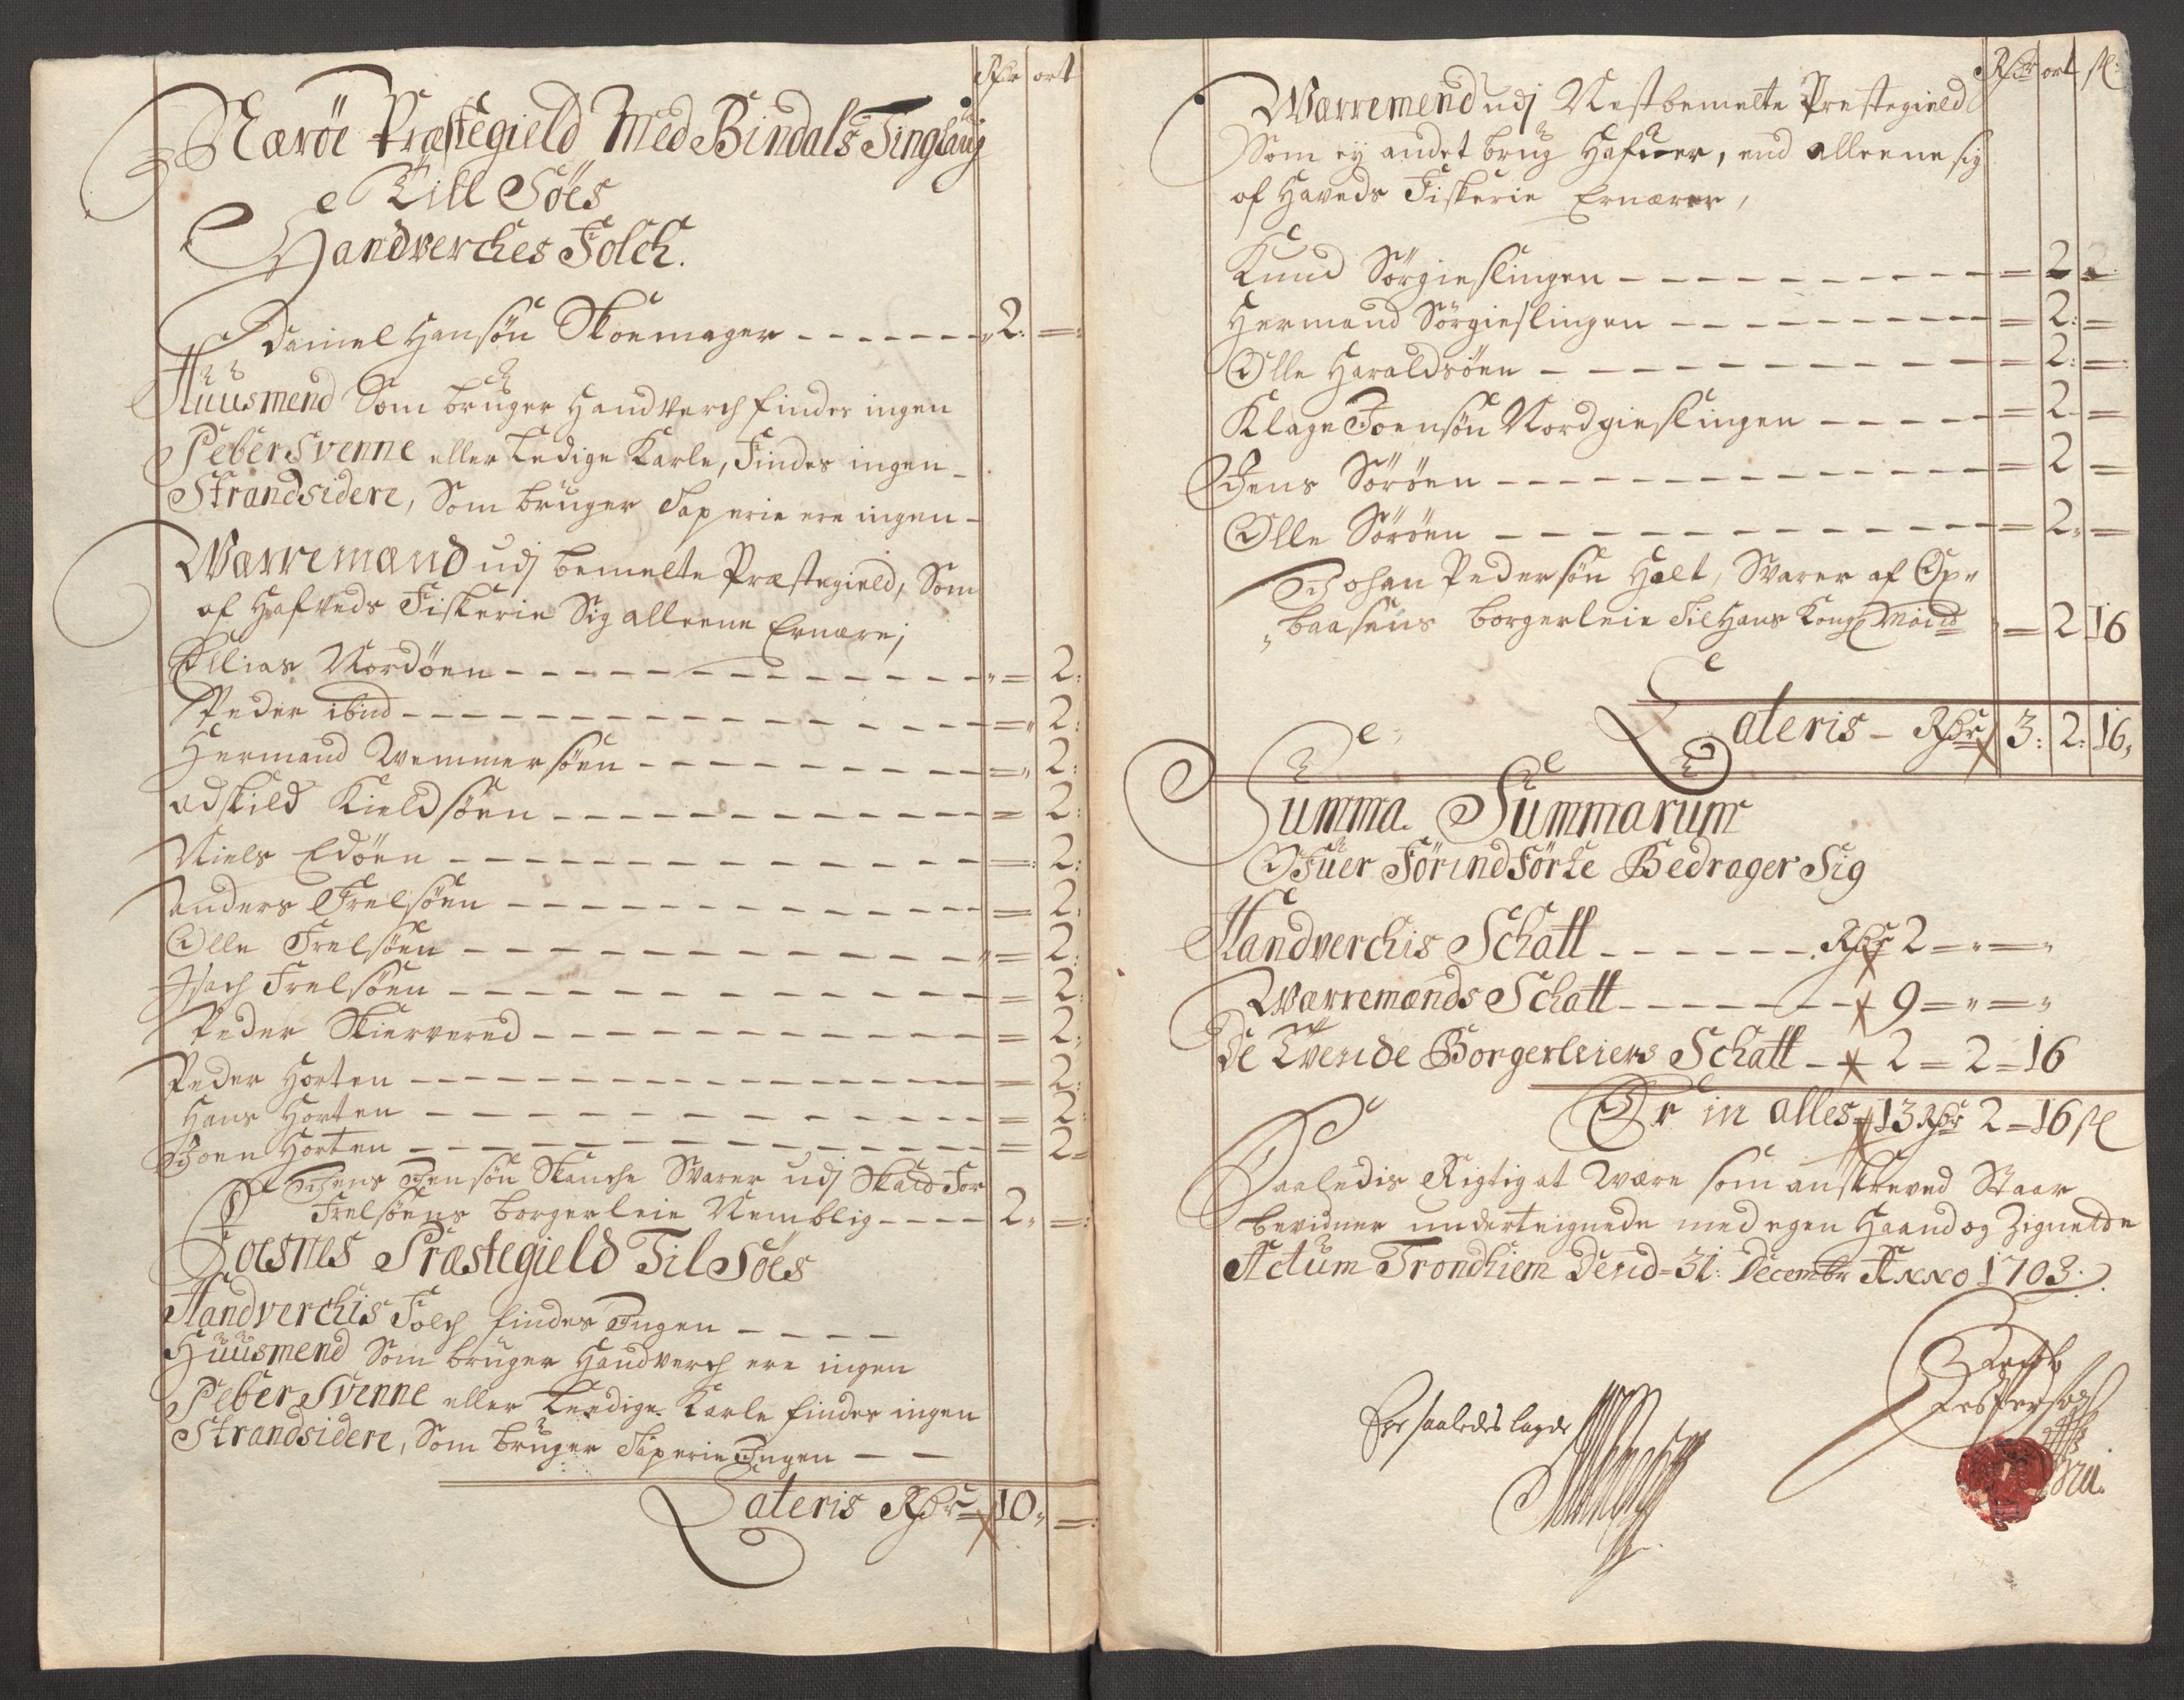 Rdr ort
Nærøe Præstegield Med Bindals Tinglaug
Till Søes
Handverches Folch.
Daniel Hansøn Skoemager - - - - - - - 2: =
Huusmend Som bruger Handverch findes ingen
Peber Svenne eller Ledige Karle, Findes ingen -
Strandsidere, Som bruger Saperie ere ingen -
Wærremænd udj bemelte Præstegield, Som
af Hafveds Fiskerie Sig alleene Ernære;
Ellias Nordøen - - - - - - - - - = 2:
Peder ibid - - - - - - - - - - = 2:
Hermand Wemmersøen - - - - - - - = 2:
Adskild Kieldsøen - - - - - - - - = 2:
Niels Edøen - - - - - - - - - - = 2:
Anders Frelsøen - - - - - - - - - = 2:
Olle Frelsøen - - - - - - - - - = 2:
Isach Frelsøen - - - - - - - - - = 2:
Peder Skiervered - - - - - - - - = 2:
Peder Horten - - - - - - - - - - = 2:
Hans Horten - - - - - - - - - - = 2:
Joen Horten - - - - - - - - - - = 2 =
Jens Jensøn Skanche Svarer udj Skatt For
Frelsøens borgerleie Nemblig - - - - 2 =
Foesnes Præstegield Til Søes
Handverchis Folch findes Ingen - - - -
Huusmend Som bruger Handverch ere ingen
Peber Svenne eller Leedige Karle findes ingen
Strandsidere, Som bruger Saperie Ingen - -
Lateris Rdr 10, =
Rdr ort sl:
Wærremend udj Nestbemelte Prestegield
Som ey andet brug Hafuer, end alleene sig
af Haveds Fiskerie Ernærer,
Knud Sørgieslingen - - - - - - - - = 2
Hermand Sørgieslingen - - - - - - - = 2: =
Olle Haraldsøen - - - - - - - - - = 2: =
Klage Joensøn Nordgieslingen - - - - - = 2 =
Jens Sørøen - - - - - - - - - - = 2 =
Olle Sørøen - - - - - - - - - - = 2 =
Johan Pedersøn Halt, Svarer af Op-
baasens borgerleie Til Hans Kongl Maitt = 2 16
Lateris - Rdr 3: 2: 16,
Summa Summarum
Ofuer Førindførte Bedrager Sig
Handverchis Schatt - - - - - - Rdr 2 = =
Wærremænds Schatt - - - - - - - 9 = =
De Tvende Borgerleiers Schatt - 2 = 2 = 16
Er in alles = 13 Rdr 2 = 16 sl
Saaledis Rigtig at Være som anskreved Staar
bevidner underteignede med egen Haand og Zignette
Actum Trondhiem Dend = 31: Decembr Anno 1703.
for saaledes lagde